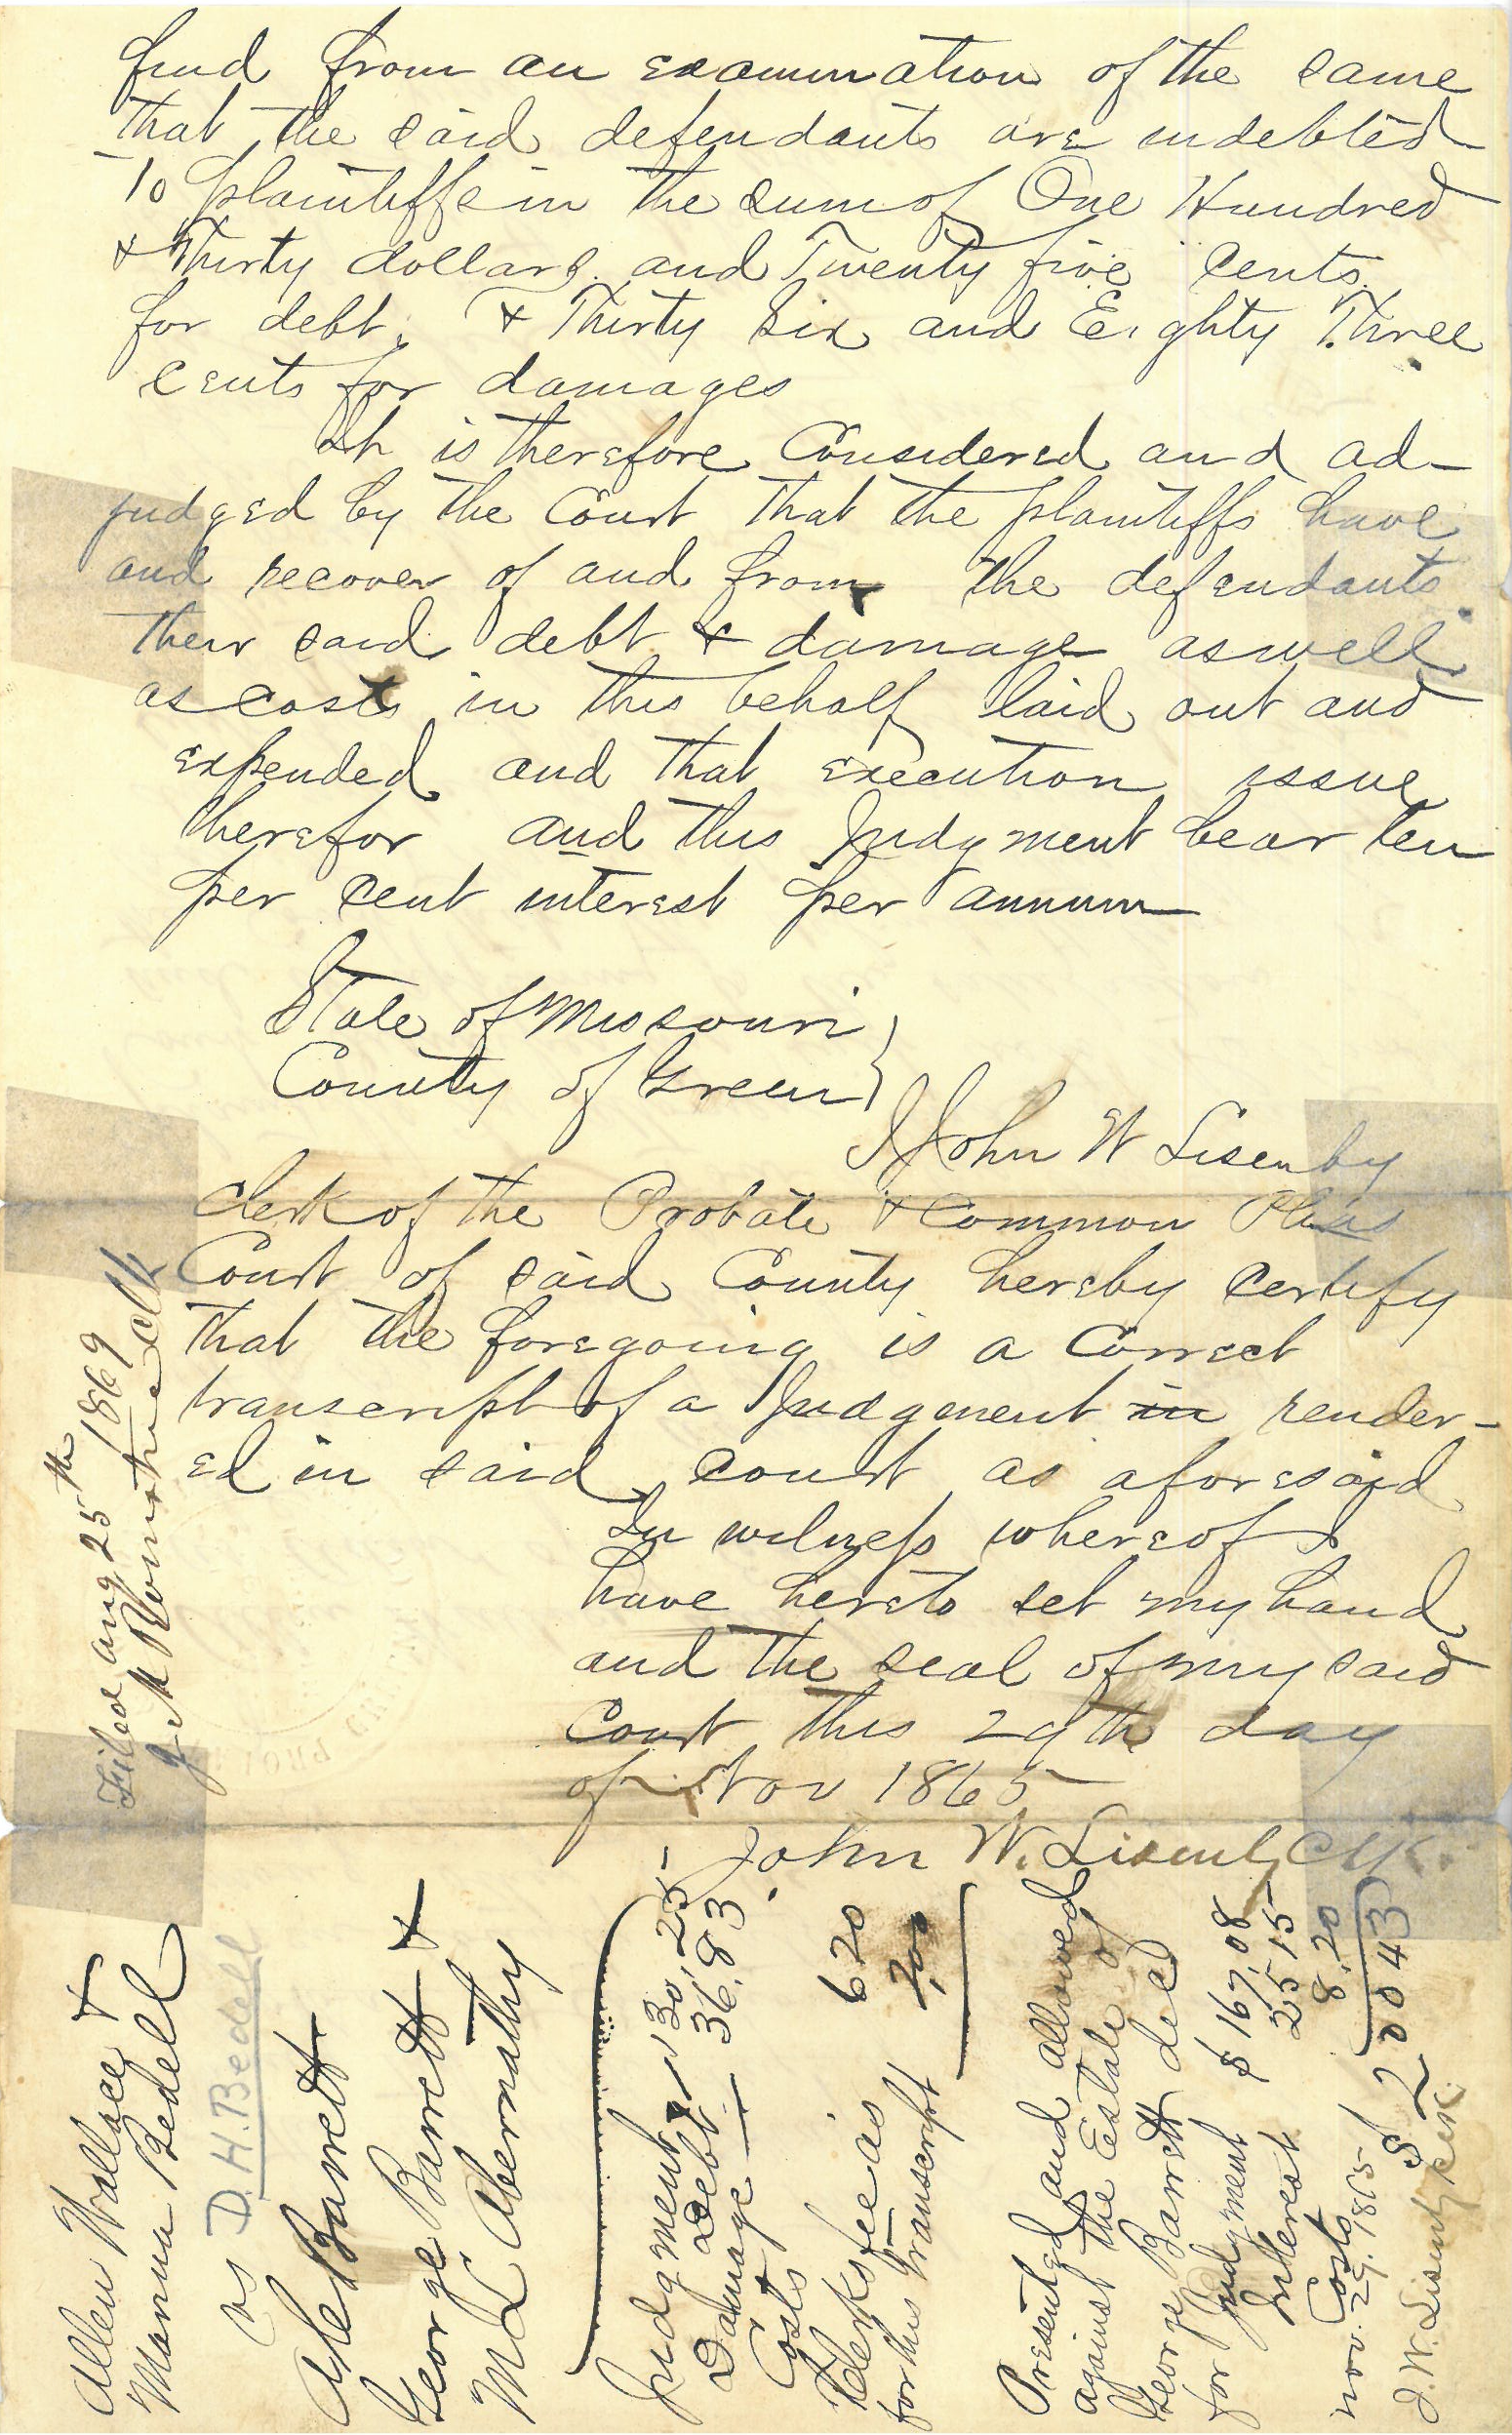 find from an examination of the same
that the said defendants are indebted
To plaintiffs in the sum of One Hundred
& Thirty dollars and Twenty five cents
for debt, & Thirty Six and Eighty Three
cents for damages
It is therefore Considered and ad-
judged by the Court that the plaintiffs have
and recover of and from the defendants
their said debt & damage as well
as costs in this behalf laid out and
expended and that execution issue
therefor and this Judgment bear ten
per cent interest per annum
State of Missouri }
County of Green }
I John W Lisenby
Clerk of the Probate & Common Pleas
Court of said County hereby certify
that the foregoing is a Correct
transcript of a Judgment in render-
ed in said court as aforesaid
In witness whereof I
have hereto set my hand
and the seal of my said
Court this 29th day
of Nov 1865
John W. Lisenby Clk.
Filed Aug 25th 1869
J M Clk
Allen Wallace &
Bedell
vs D. H. Bedell
Abe Barrett
George Barrett &
M L Abernathy
Judgment
Debt 130,25
Damage 36.83
Costs 6 20
Clerks fee as
for this Transcript 2,00
Presented and allowed
against the Estate of
George Barrett decd
for Judgment $ 167.08
Interest 25 15
Costs 8.20
Nov. 29. 1865 $ 200 43
J. W. Lisenby Clk.